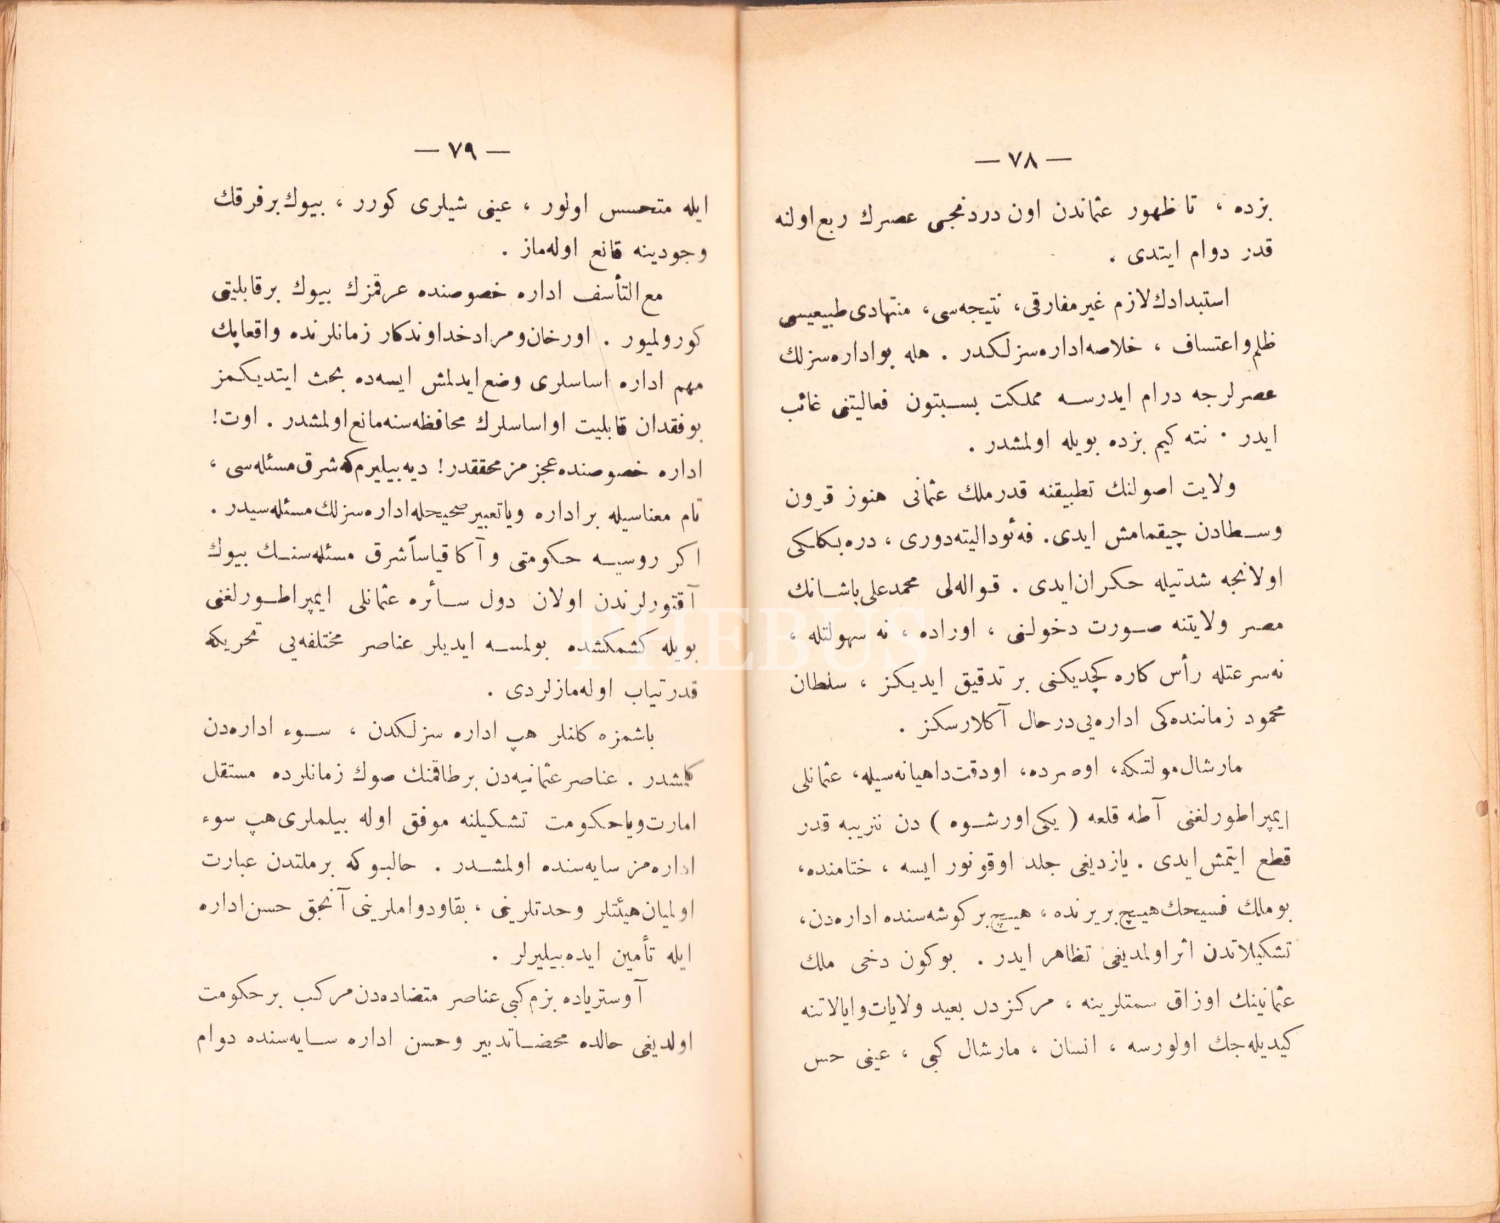 — ٧٨ —
بزده ، تا ظهور عثماندن اون دردنجی عصرك ربع اولنه
قدر دوام ایتدی .
استبدادك لازم غیر مفارقی، نتیجه‌سی، منتهادی طبیعیسی
ظلم و اعتساف ، خلاصه اداره‌سزلكدر . هله بو اداره‌سزلك
عصرلرجه درام ایدرسه مملكت بسبتون فعالیتنی غائب
ایدر . نته كیم بزده بویله اولمشدر .
ولایت اصولنك تطبیقنه قدر ملك عثمانی هنوز قرون
وسطادن چیقمامش ایدی. فه‌ئودالیته دوری ، دره‌بكلكی
اولانجه شدتیله حكمران ایدی . قواله‌لی محمد علی پاشانك
مصر ولایتنه صورت دخولنی ، اوراده ، نه سهولتله ،
نه سرعتله رأس كاره كچدیكنی بر تدقیق ایدیكز ، سلطان
محمود زماننده‌كی اداره‌یی درحال آكلارسكز .
مارشال مولتكه، اوصرده، اودقت داهیانه‌سیله، عثمانلی
ایمپراطورلغنی آطه قلعه ( یكی اورشوه ) دن نزیبه قدر
قطع ایتمش ایدی . یازدیغی جلد اوقونور ایسه ، ختامنده،
بو ملك فسیحك هیچ بر یرنده ، هیچ بر كوشه‌سنده اداره‌دن،
تشكیلاتدن اثر اولمدیغی تظاهر ایدر . بوكون دخی ملك
عثمانینك اوزاق سمتلرینه ، مركزدن بعید ولایات و ایالاتنه
كیدیله‌جك اولورسه ، انسان ، مارشال كبی ، عینی حس
— ٧٩ —
ایله متحسس اولور ، عینی شیلری كورر ، بیوك بر فرقك
وجودینه قانع اوله‌ماز .
مع التأسف اداره خصوصنده عرقمزك بیوك بر قابلیتی
كورولمیور . اورخان و مراد خداوندكار زمانلرنده واقعا پك
مهم اداره اساسلری وضع ایدلمش ایسه‌ده بحث ایتدیكمز
بو فقدان قابلیت او اساسلرك محافظه‌سنه مانع اولمشدر . اوت!
اداره خصوصنده عجزمز محققدر! دیه بیلیرم كه شرق مسئله‌سی ،
تام معناسیله بر اداره ویا تعبیر صحیحله اداره‌سزلك مسئله‌سیدر .
اكر روسیه حكومتی و آكا قیاساً شرق مسئله‌سنك بیوك
آقتورلرندن اولان دول سائره عثمانلی ایمپراطورلغنی
بویله كشمكشده بولمسه ایدیلر عناصر مختلفه‌یی تحریكه
قدرتیاب اوله‌مازلردی .
باشمزه كلنلر هپ اداره سزلكدن ، سوء اداره‌دن
كلمشدر . عناصر عثمانیه‌دن بر طاقمنك صوك زمانلرده مستقل
امارت ویا حكومت تشكیلنه موفق اوله بیلملری هپ سوء
اداره‌مز سایه‌سنده اولمشدر . حالبوكه بر ملتدن عبارت
اولمیان هیئتلر وحدتلرینی ، بقا و دواملرینی آنجق حسن اداره
ایله تأمین ایده‌بیلیرلر .
آوستریاده بزم كبی عناصر متضاده‌دن مركب بر حكومت
اولدیغی حالده محضا تدبیر و حسن اداره سایه‌سنده دوام
PHEBUS